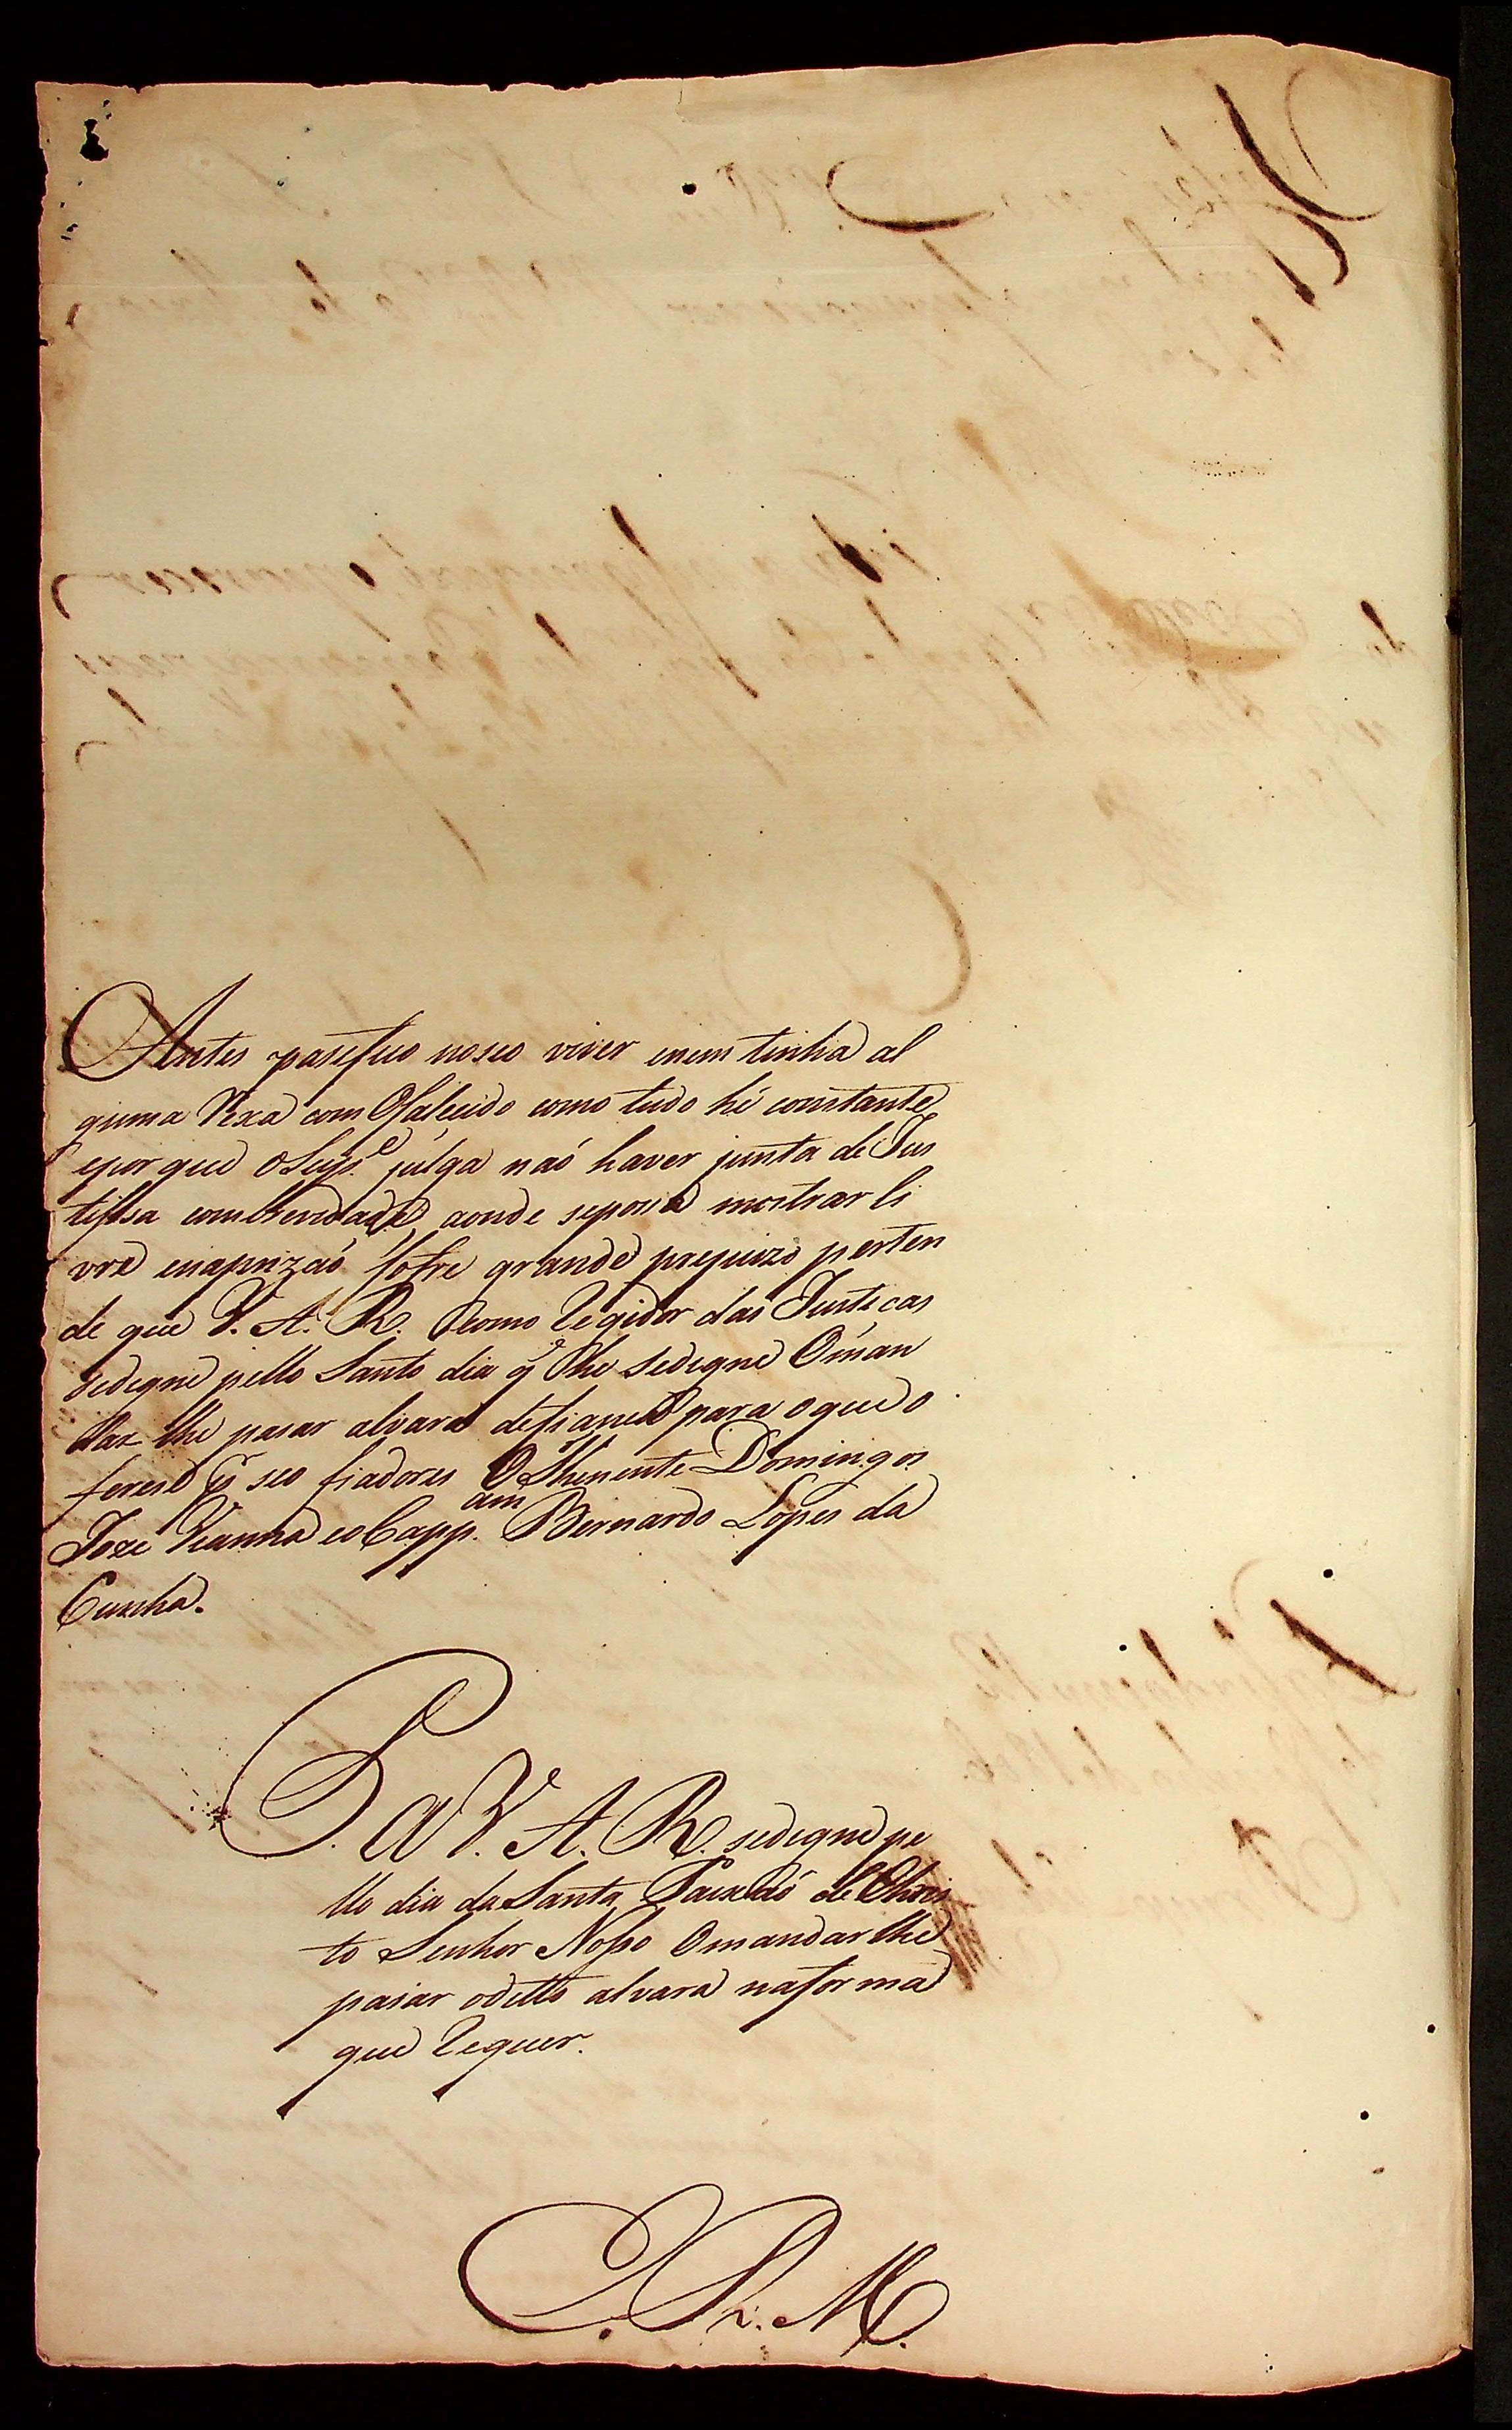 Antes pasefico no seo viver enem tinha al
guma Rexa com Ofalecido como tudo hé constante
epor que o Sup.e julga naó haver junta de Jus
tissa combrevidade, aonde seposa mostrar li
vre enaprizaó sofre grande prejuizo perten
de que V. A. R. como Regidor das Justicas
sedegne pello Santo dia q̃ he sedegne Oman
dar lhe pasar alvara defianca para o que o
ferese p seo fiadores O Thenente Domingos
Joze Vianna eo Capp.am Bernardo Lopes da
Cunha.
P. a V. A. R. sedegne pe
llo dia da Santa Paixaó de Chris
to Senhor Nosso Omandar lhe
pasar oditto alvara naforma
que Requer.
E. R. M.